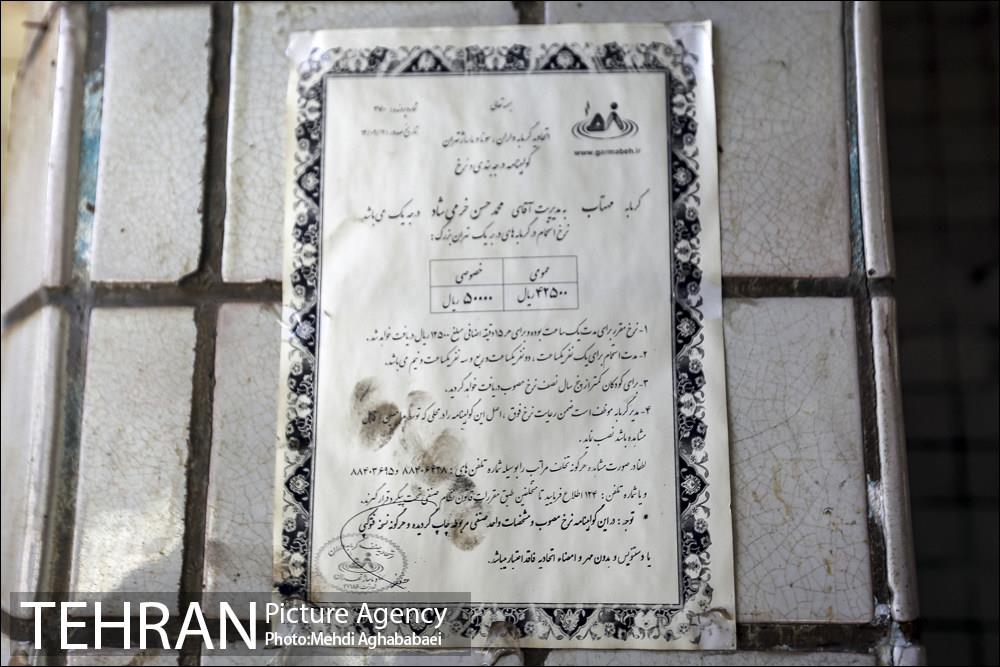 بسمه تعالی
شماره پرونده: ۳۷۰
اتحادیه گرمابه داران، سونا و ماساژ تهران
گواهینامه درجه بندی و نرخ
www.garmabeh.ir
گرمابه مهتاب به مدیریت آقای محمد حسن خرمی شاد درجه یک می باشد.
نرخ استحمام در گرمابه های درجه یک تهران بزرگ:
عمومی خصوصی
۴۲۵۰۰ ریال ۵۰۰۰۰ ریال
۱- نرخ مقرر برای مدت یک ساعت بوده و برای هر ۱۵ دقیقه اضافی مبلغ ۱۲۵۰۰ ریال دریافت خواهد شد.
۲- مدت استحمام برای یک نفر یکساعت، دو نفر یکساعت و ربع و سه نفر یکساعت و نیم می باشد.
۳- برای کودکان کمتر از پنج سال نصف نرخ مصوب دریافت خواهد گردید.
۴- مدیر گرمابه موظف است ضمن رعایت نرخ فوق، اصل این گواهینامه را در محلی که توسط قابل
مشاهده باشد نصب نماید.
لطفا در صورت مشاهده هرگونه تخلف مراتب را بوسیله شماره تلفن های: ۸۸۴۰۶۴۳۸ و ۸۸۴۰۳۶۹۵
و با شماره تلفن: ۱۲۴ اطلاع فرمایید تا متخلفین طبق مقررات قانون نظام صنفی تحت پیگرد قرار گیرند.
* توجه: در این گواهینامه نرخ مصوب و مشخصات واحد صنفی مربوطه چاپ گردیده و هرگونه نسخه فتوکپی
یا دستنویس و بدون مهر و امضاء اتحادیه فاقد اعتبار میباشد.
TEHRAN Picture Agency
Photo:Mehdi Aghababaei